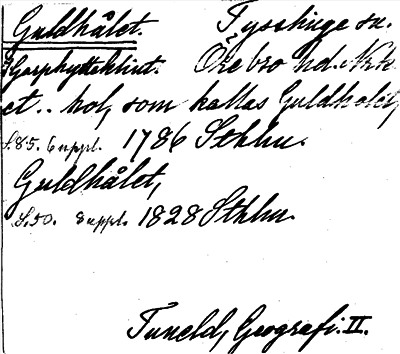 Guldhålet. Tysslinge sn.
Garphytteklint. Örebro hd. Nrk.
et.. hol, som kallas Guldholet,
s.85. 6 uppl. 1786 Sthlm.
Guldhålet,
S.50. 8 uppl. 1828 Sthlm.
Tuneld, Geografi. II.